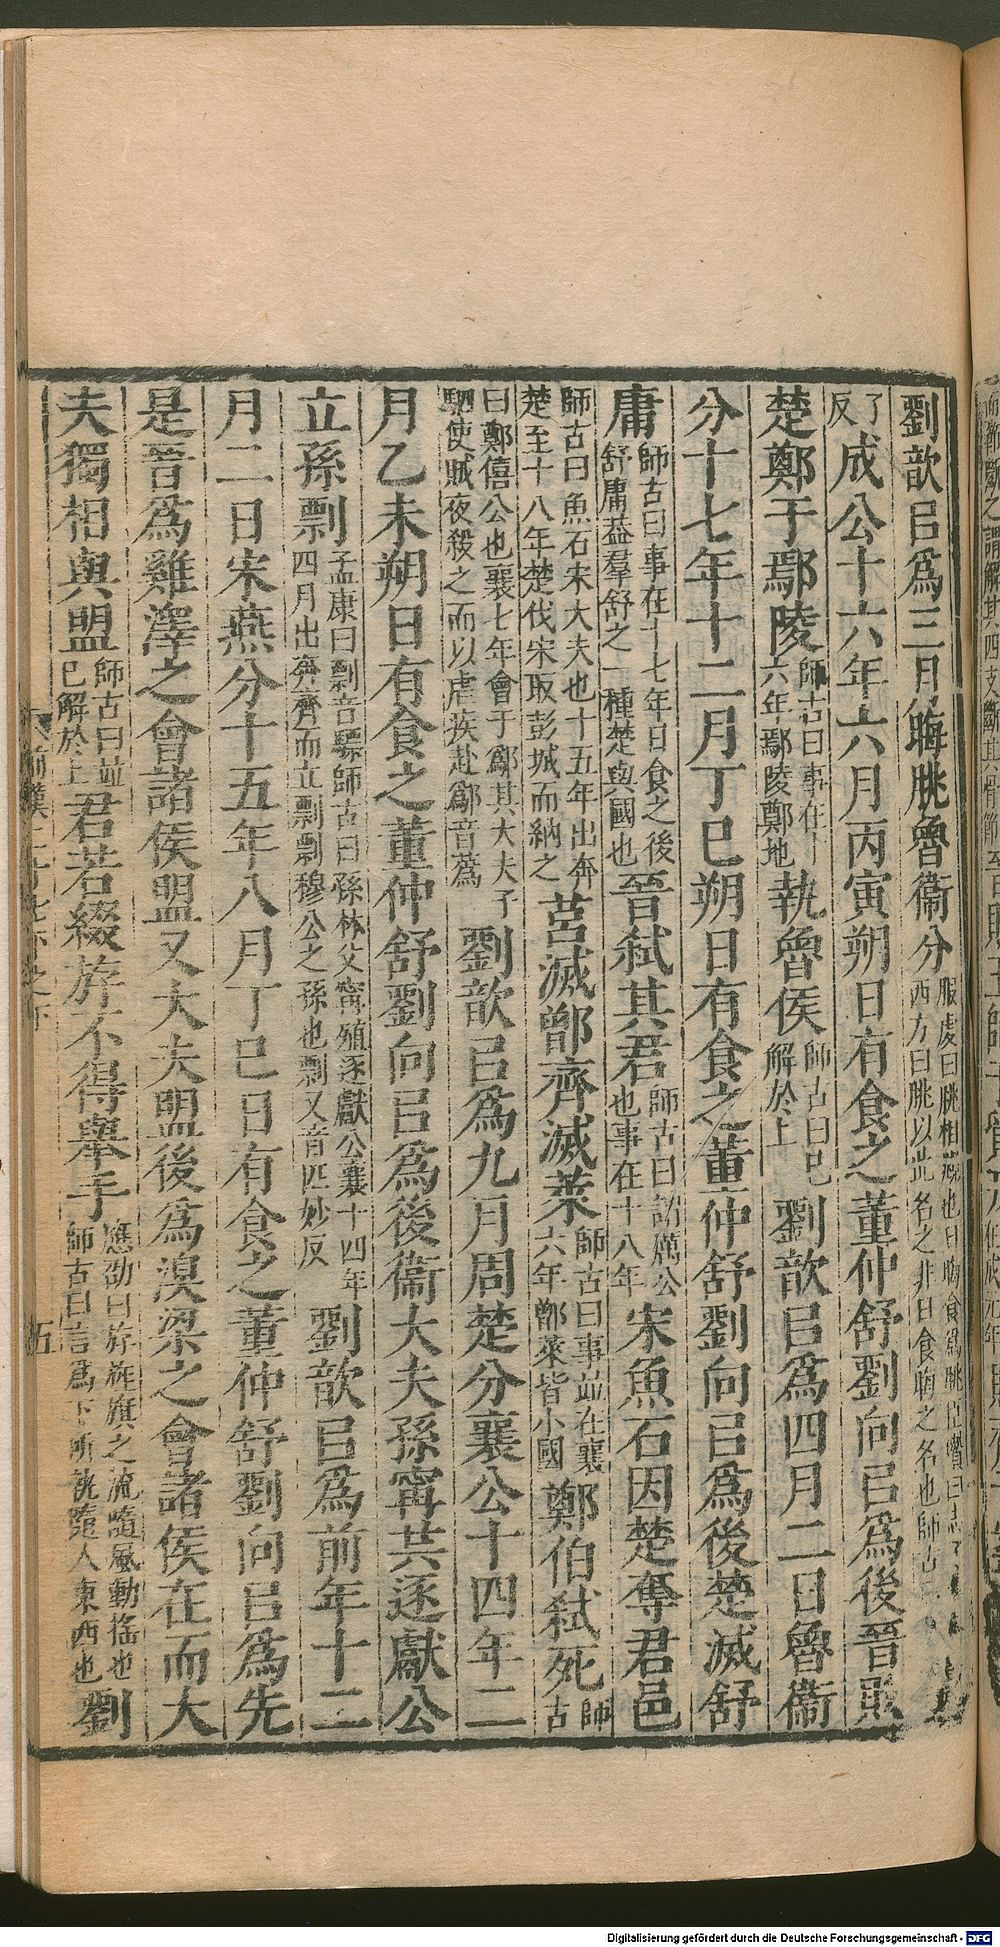 劉歆㠯爲三月晦朓魯衞分服虔曰朓相覜也日晦食爲朓臣瓚曰志云晦而月見西方曰朓以此名之非日食晦之名也師古
了反成公十六年六月丙寅朔日有食之董仲舒劉向㠯爲後晉敗
楚鄭于鄢陵師古曰事在十六年鄢陵鄭地執魯侯師古曰已解於上劉歆㠯爲四月二日魯衞
分十七年十二月丁巳朔日有食之董仲舒劉向㠯爲後楚滅舒
庸師古曰事在十七年日食之後舒庸蓋羣舒之一種楚與國也晉弒其君師古曰謂厲公也事在十八年宋魚石因楚奪君邑
師古曰魚石宋大夫也十五年出奔楚至十八年楚伐宋取彭城而納之莒滅鄫齊滅萊師古曰事並在襄六年鄫萊皆小國鄭伯弒死師古
曰鄭僖公也襄七年會于鄬其大夫子駟使賊夜殺之而以虐疾赴鄬音蒍劉歆㠯爲九月周楚分襄公十四年二
月乙未朔日有食之董仲舒劉向㠯爲後衞大夫孫甯共逐獻公
立孫剽孟康曰剽音驃師古曰孫林父甯殖逐獻公襄十四年四月出奔齊而立剽剽穆公之孫也剽又音匹妙反劉歆㠯爲前年十二
月二日宋燕分十五年八月丁巳日有食之董仲舒劉向㠯爲先
是晉爲雞澤之會諸侯盟又大夫盟後爲溴梁之會諸侯在而大
夫獨相與盟師古曰並已解於上君若綴斿不得舉手應劭曰斿旌旗之流隨風動搖也師古曰言爲下所執隨人東西也劉
前漢二十七下之下
五
Digitalisierung gefördert durch die Deutsche Forschungsgemeinschaft - DFG